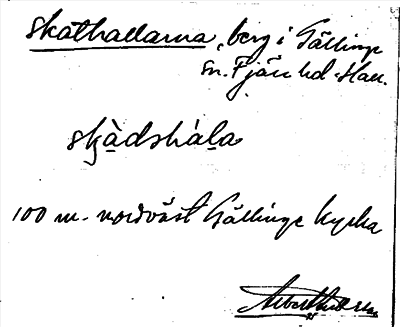 Skathallarna, berg i Gällinge
sn. Fjäre hd. Hall.
skàdshàla
100 m. nordväst Gällinge kyrka